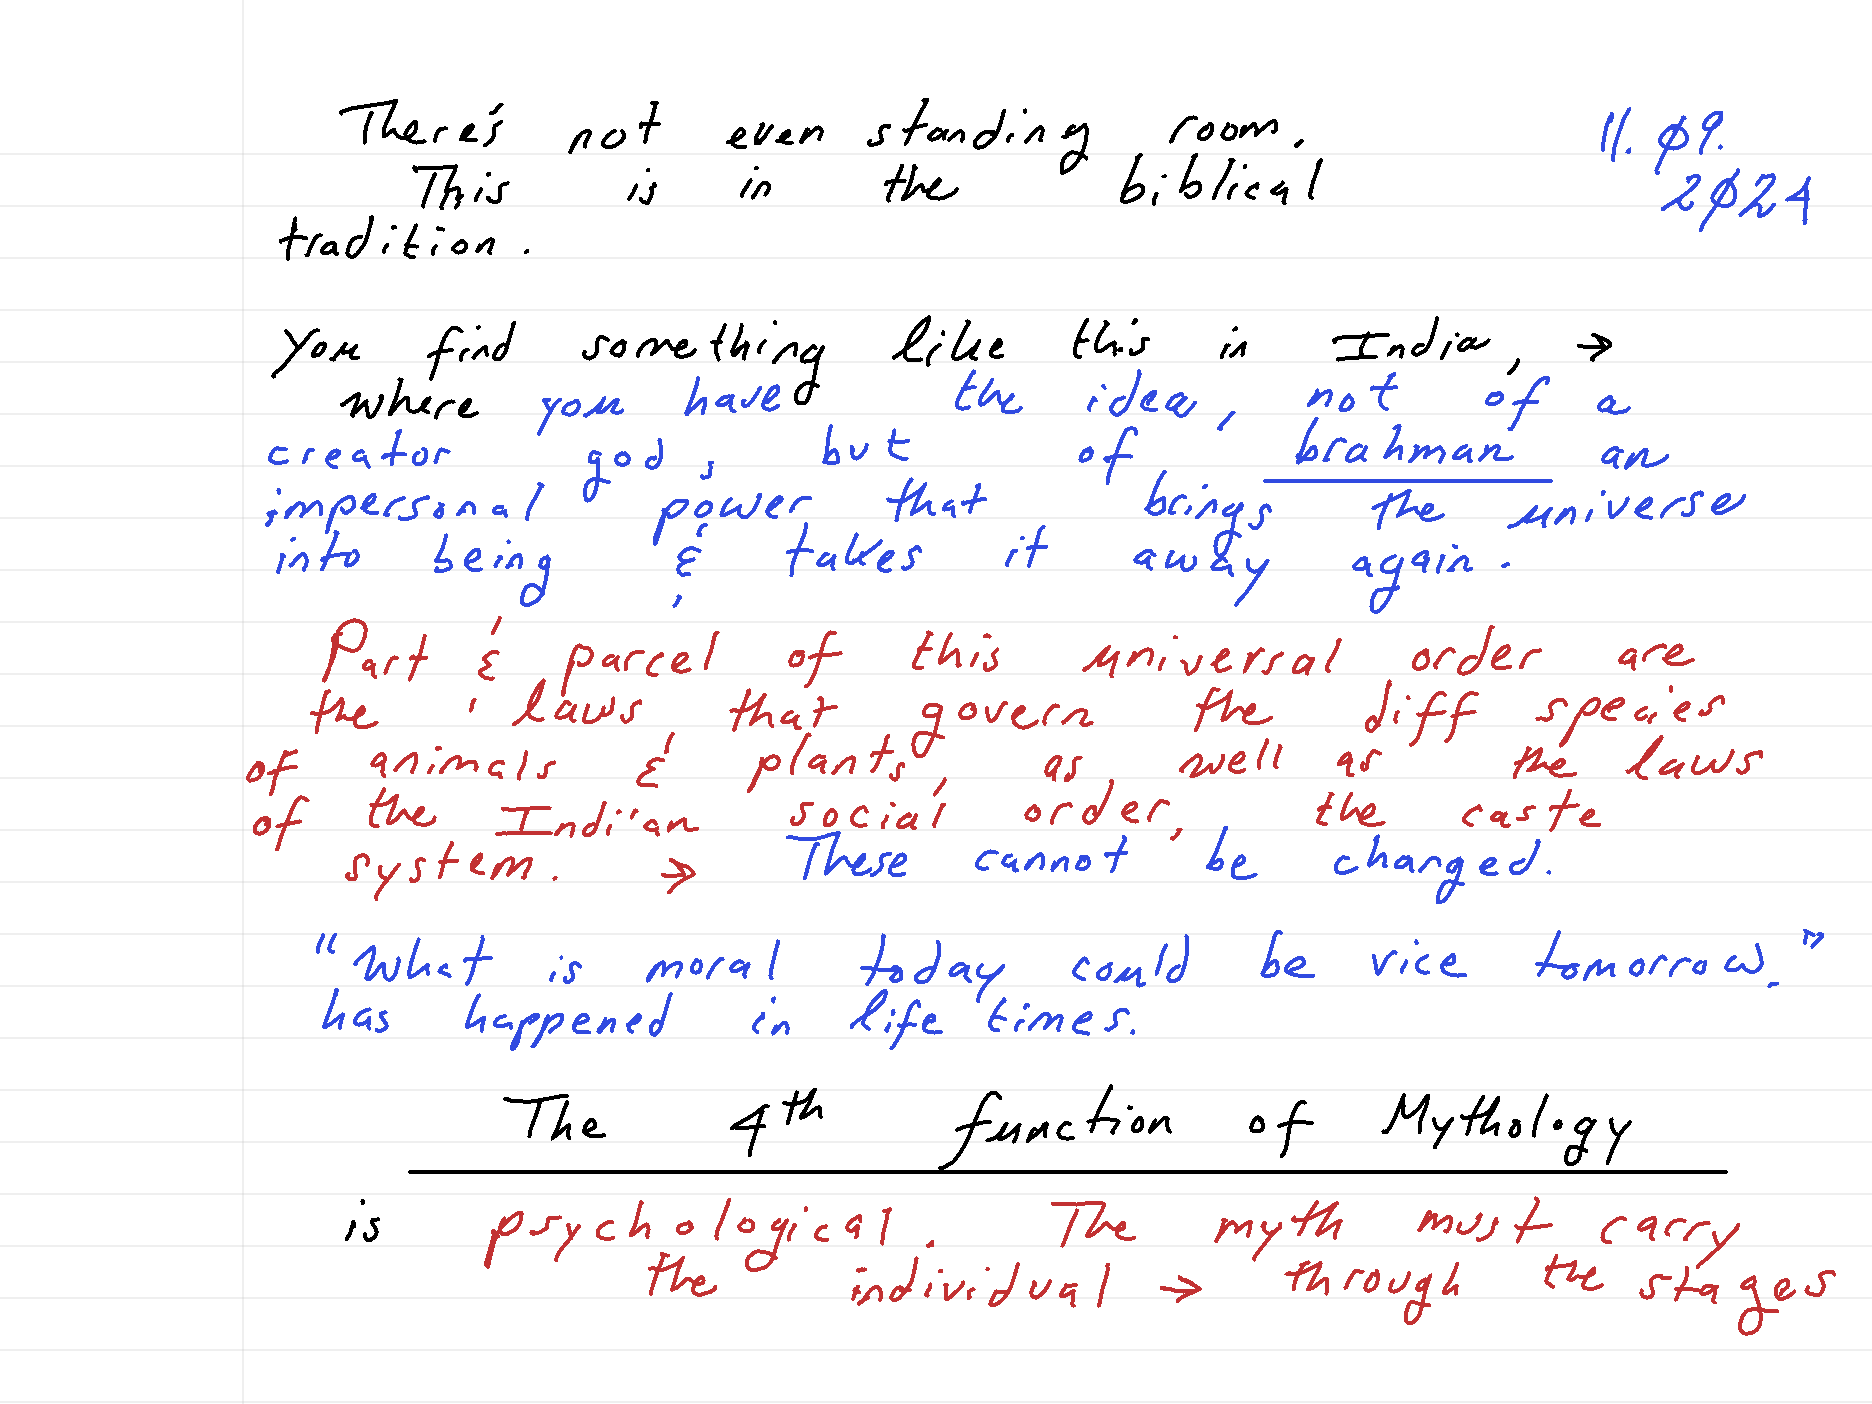 There's not even standing room. 11. Ø9.
This is in the biblical 2Ø24
tradition.
You find something like this in India, →
where you have the idea, not of a
creator god, but of brahman an
impersonal power that brings the universe
into being & takes it away again.
Part & parcel of this universal order are
the laws that govern the diff species
of animals & plants, as well as the laws
of the Indian social order, the caste
system. → These cannot be changed.
"What is moral today could be vice tomorrow."
has happened in life times.
The 4th function of Mythology
is psychological. The myth must carry
the individual → through the stages